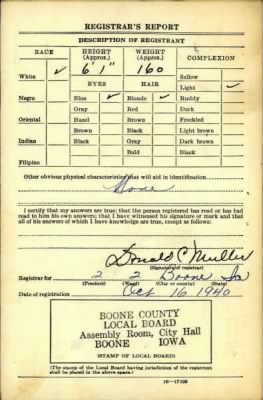 REGISTRAR'S REPORT
DESCRIPTION OF REGISTRANT
RACE HEIGHT (Approx.) WEIGHT (Approx.) COMPLEXION
White ✓ 6' 1" 160 Sallow
EYES HAIR Light ✓
Negro Blue ✓ Blonde ✓ Ruddy
Gray Red Dark
Oriental Hazel Brown Freckled
Brown Black Light brown
Indian Black Gray Dark brown
Bald Black
Filipino
Other obvious physical characteristics that will aid in identification
None
I certify that my answers are true; that the person registered has read or has had read to him his own answers; that I have witnessed his signature or mark and that all of his answers of which I have knowledge are true, except as follows:
Donald C Muller
(Signature of registrar)
Registrar for 2 2 Boone Ia
(Precinct) (Ward) (City or county) (State)
Date of registration Oct 16 1940
BOONE COUNTY
LOCAL BOARD
Assembly Room, City Hall
BOONE IOWA
(STAMP OF LOCAL BOARD)
(The stamp of the Local Board having jurisdiction of the registrant shall be placed in the above space.)